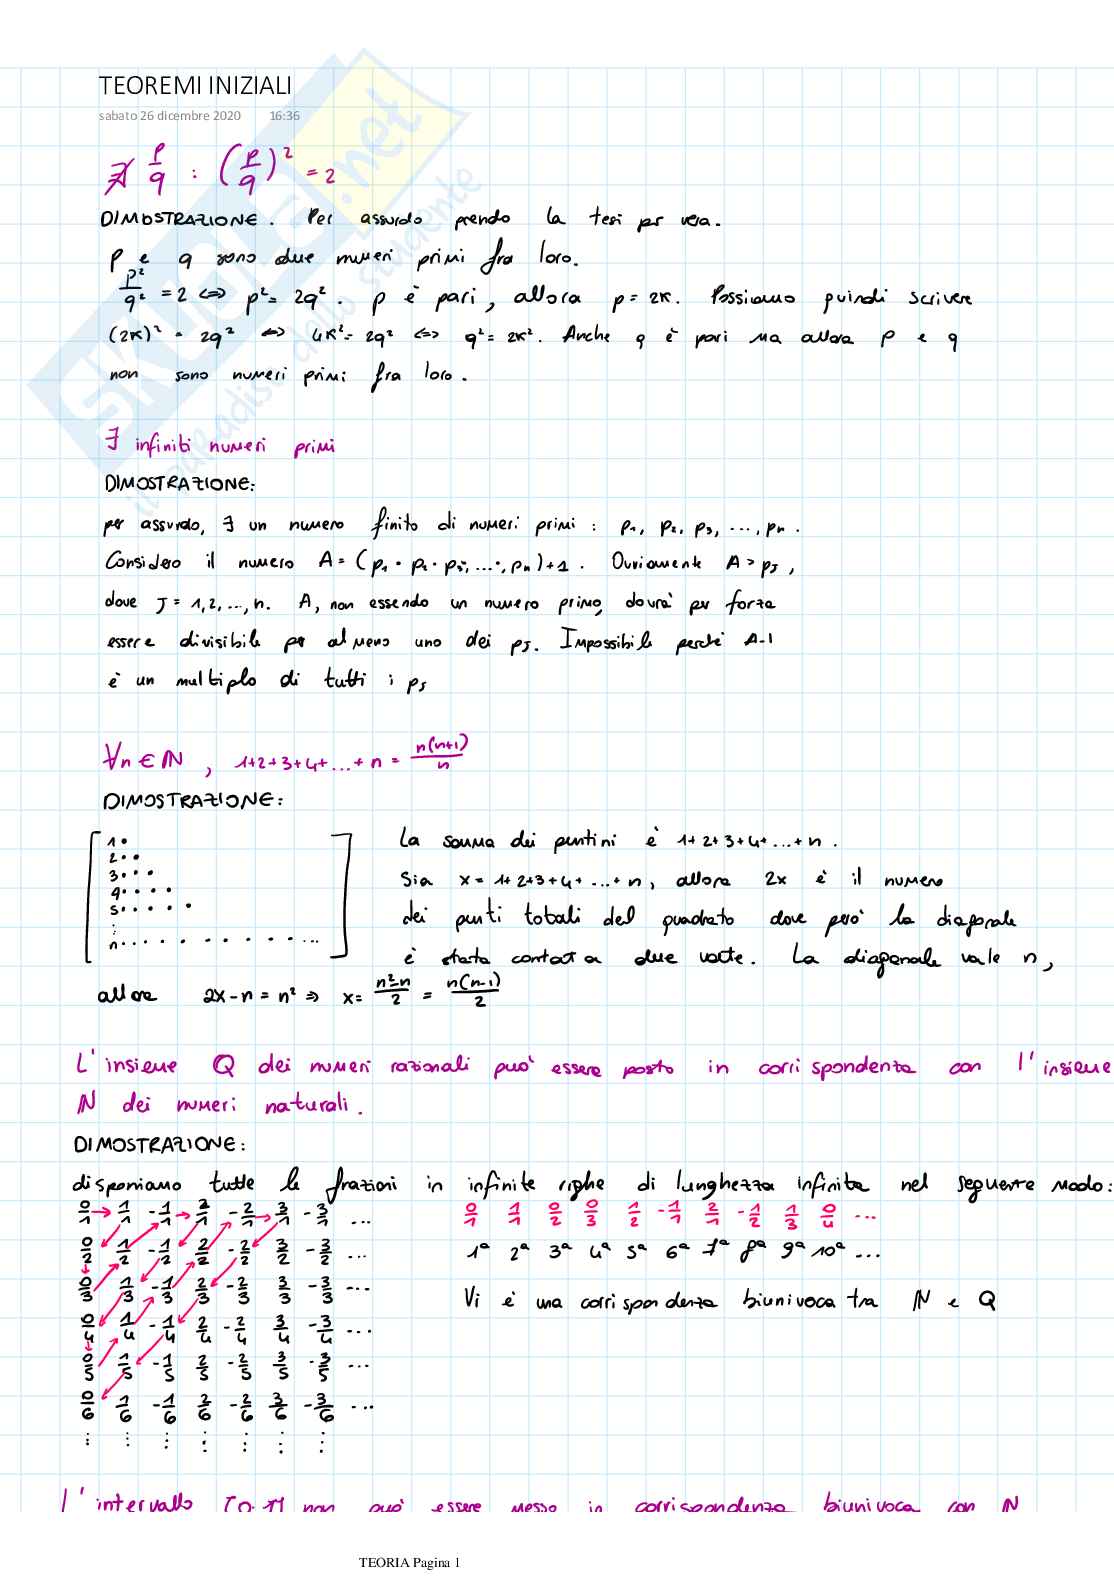 TEOREMI INIZIALI
sabato 26 dicembre 2020 16:36
∄ p/q : (p/q)² = 2
DIMOSTRAZIONE. Per assurdo prendo la tesi per vera.
p e q sono due numeri primi fra loro.
p²/q² = 2 <=> p² = 2q². p è pari, allora p = 2K. Possiamo quindi scrivere
(2K)² = 2q² <=> 4K² = 2q² <=> q² = 2K². Anche q è pari ma allora p e q
non sono numeri primi fra loro.
∃ infiniti numeri primi
DIMOSTRAZIONE:
per assurdo, ∃ un numero finito di numeri primi : p₁, p₂, p₃, ..., pₙ.
Considero il numero A = (p₁ · p₂ · p₃, ..., pₙ)+1. Ovviamente A > pⱼ,
dove J = 1, 2, ..., n. A, non essendo un numero primo, dovrà per forza
essere divisibile per almeno uno dei pⱼ. Impossibile perché A-1
è un multiplo di tutti i pⱼ
∀n ∈ ℕ, 1+2+3+4+...+n = n(n+1)/n
DIMOSTRAZIONE:
1 •
2 • •
3 • • •
4 • • • •
5 • • • • •
⋮
n • • • • • • • • • • ...
La somma dei puntini è 1+2+3+4+...+n.
Sia x = 1+2+3+4+...+n, allora 2x è il numero
dei punti totali del quadrato dove però la diagonale
è stata contata due volte. La diagonale vale n,
allora 2x-n = n² => x = n²-n/2 = n(n-1)/2
L'insieme Q dei numeri razionali può essere posto in corrispondenza con l'insieme
ℕ dei numeri naturali.
DIMOSTRAZIONE:
disponiamo tutte le frazioni in infinite righe di lunghezza infinita nel seguente modo:
0/1 1/1 -1/1 2/1 -2/1 3/1 -3/1 ...
0/2 1/2 -1/2 2/2 -2/2 3/2 -3/2 ...
0/3 1/3 -1/3 2/3 -2/3 3/3 -3/3 ...
0/4 1/4 -1/4 2/4 -2/4 3/4 -3/4 ...
0/5 1/5 -1/5 2/5 -2/5 3/5 -3/5 ...
0/6 1/6 -1/6 2/6 -2/6 3/6 -3/6 ...
⋮ ⋮ ⋮ ⋮ ⋮ ⋮ ⋮
0/1 1/1 0/2 0/3 1/2 -1/1 2/1 -1/2 1/3 0/4 ...
1ª 2ª 3ª 4ª 5ª 6ª 7ª 8ª 9ª 10ª ...
Vi è una corrispondenza biunivoca tra ℕ e Q
l'intervallo [0,1] non può essere messo in corrispondenza biunivoca con ℕ
TEORIA Pagina 1
skuola.net
il paradiso dello studente